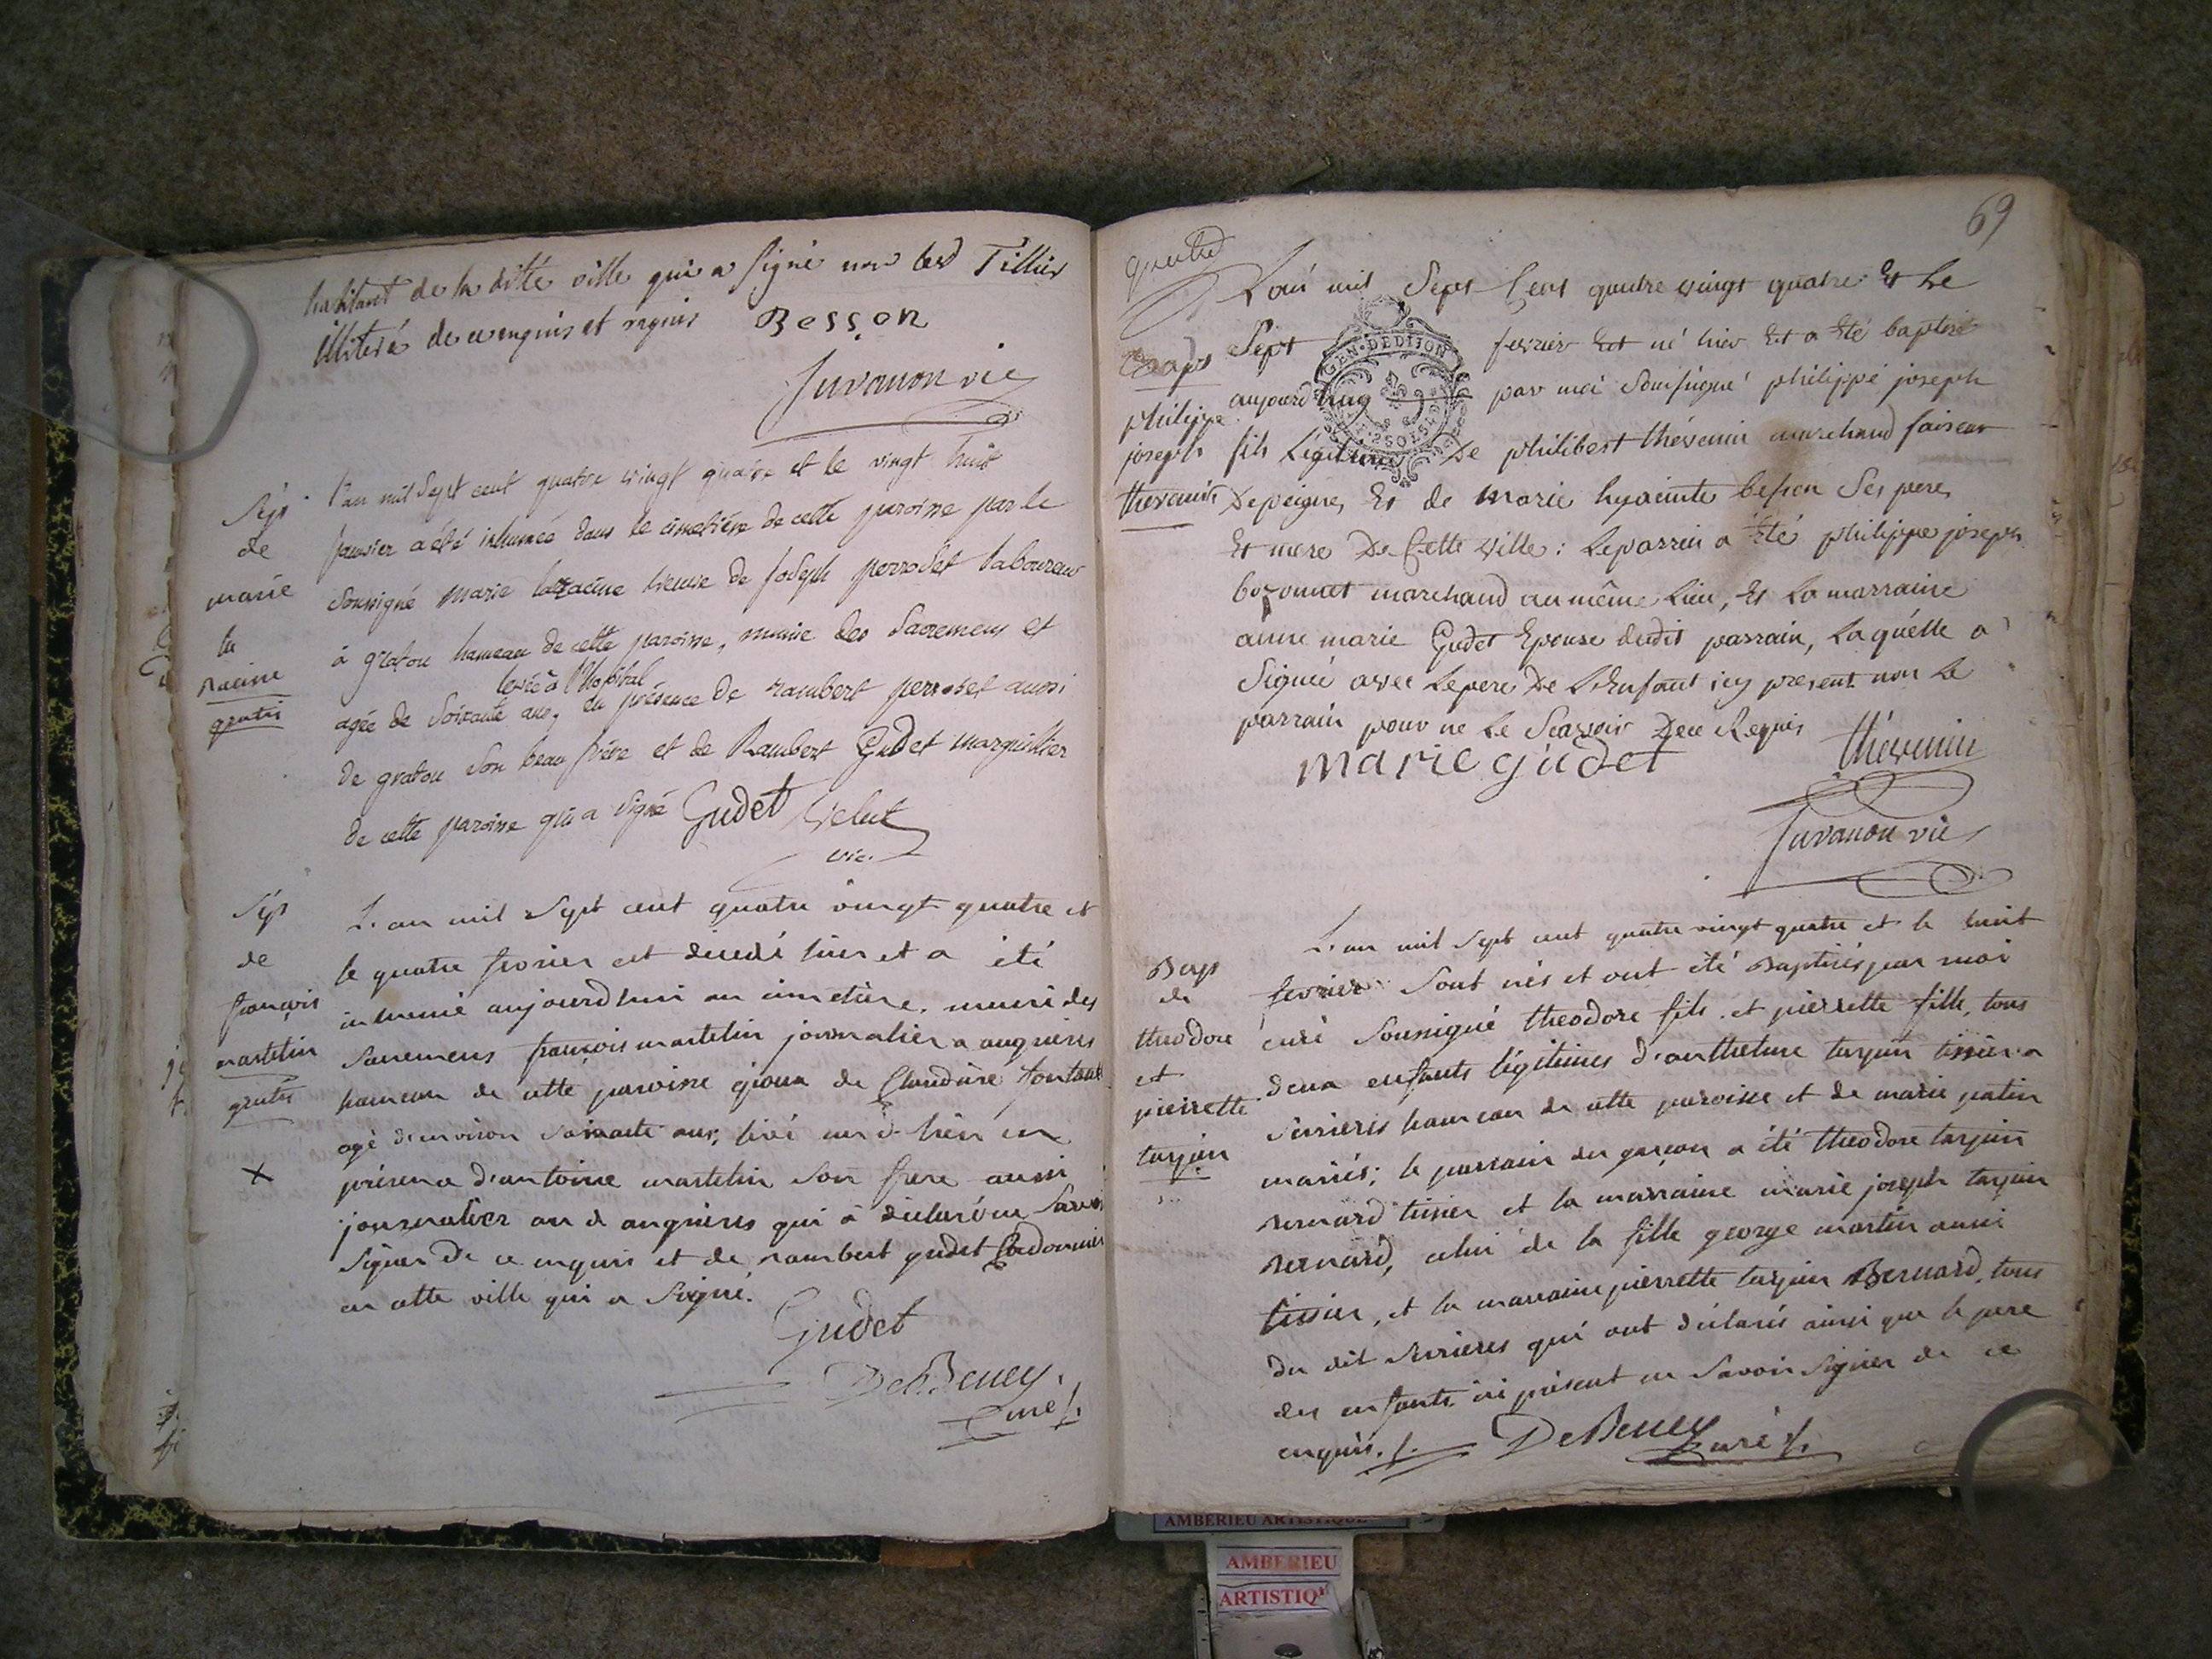 habitant de la ditte ville qui a signé non led Tillier
illiteré de ce enquis et requis Besson
Juvanon vic
Sép. de marie la racine gratis
l'an mil sept cent quatre vingt quatre et le vingt huit
janvier a été inhumée dans le cimetière de cette paroisse par le
soussigné marie la racine veuve de joseph perrodet laboureur
à gratou hameau de cette paroisse, munie des sacremens et
levée à l'hopital
agée de soixante ans, en présence de rambert perrodet aussi
de gratou son beau frère et de Rambert Gudet marguillier
de cette paroisse qui a signé Gudet Velut
vic.
Sép de françois martelin gratis
L'an mil sept cent quatre vingt quatre et
le quatre fevrier est décedé hier et a été
inhumé aujourdhui au cimetière, muni des
sacremens françois martelin journalier a angrieres
hameau de cette paroisse époux de Claudine fontaine
agé d'environ soixante ans, levé aud. lieu en
présence d'antoine martelin son frere aussi
journalier au d angrieres qui a déclaré ne savoir
signer de ce enquis et de rambert gudet Cordonnier
en cette ville qui a signé.
Gudet
DeBeney,
Curé
69
quatre
Bap philippe joseph thevenin
L'an mil sept cens quatre vingt quatre Et le
Sept fevrier Est né hier Et a Eté baptisé
GEN. DE DIJON
aujourd'huy par moi soussigné philippe joseph
fils Légitime De philibert thévenin marchand faiseur
De peignes Et de marie hyacinte besson Ses pere
Et mere De Cette ville : Le parrein a Eté philippe joseph
marchand au même Lieu, Et La marraine
anne marie Gudet Epouse dudit parrain, Laquelle a
Signée avec Le pere De L'Enfant icy present non Le
parrain pour ne Le Scavoir De ce Requis
marie gudet thévenin
Juvanon vic
Bap de theodore et pierrette tarjin
L'an mil sept cent quatre vingt quatre et le huit
fevrier sont nés et ont été Baptisés par moi
curé soussigné theodore fils et pierrette fille, tous
deux enfants légitimes d'anthelme tarjin tissier a
serrieres hameau de cette paroisse et de marie patin
mariés; le parrain du garçon a été theodore tarjin
Bernard tissier et la marraine marie joseph tarjin
Bernard, celui de la fille george martin aussi
tissier, et la marraine pierrette tarjin Bernard, tous
du dit serrieres qui ont déclarés ainsi que le pere
des enfants ici présent ne savoir signer de ce
enquis. DeBeney
Curé
AMBERIEU ARTISTIQUE
AMBERIEU
ARTISTIQ